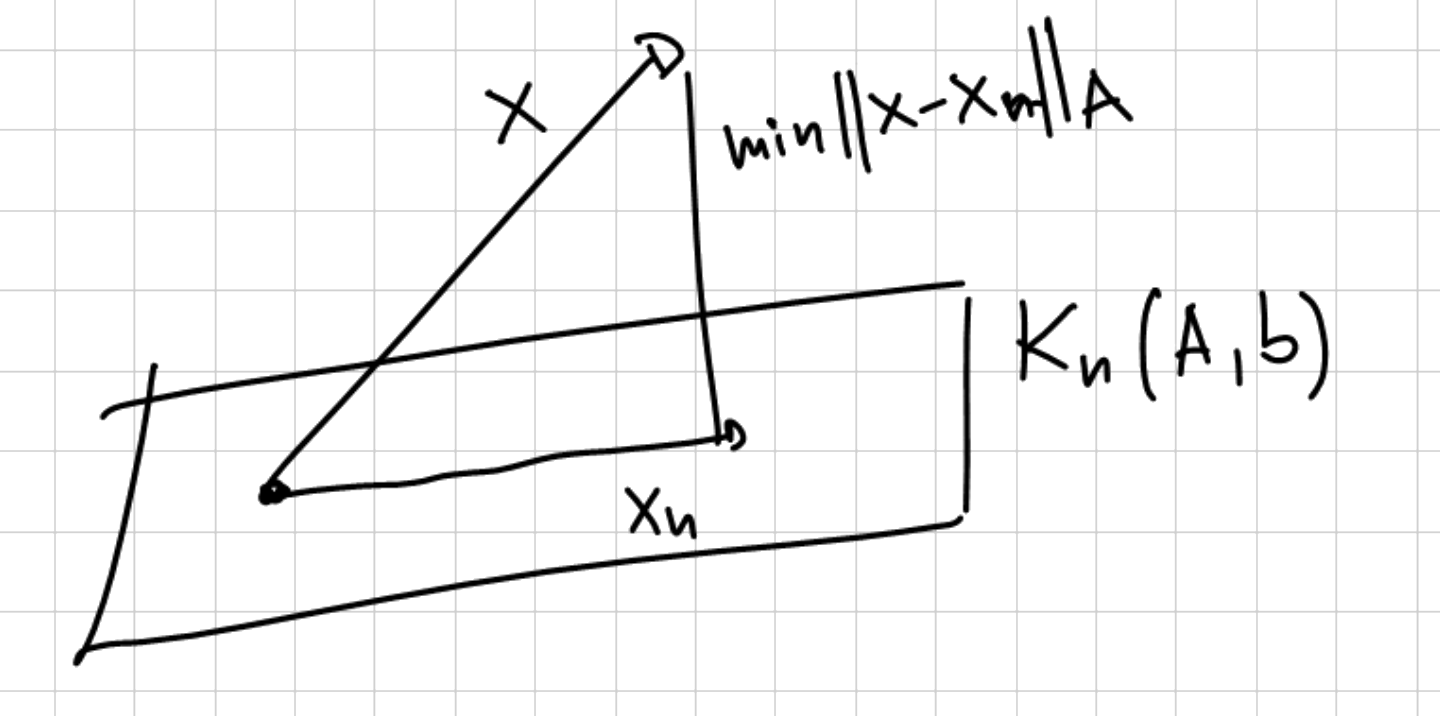 X
min||x-xn||A
Kn(A,b)
xn